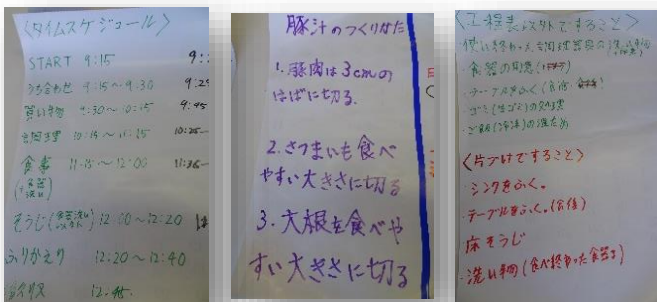 〈タイムスケジュール〉
START 9:15
うち合わせ 9:15〜9:30
買い物 9:30〜10:15
調理 10:15〜11:15
食事 11:15〜12:00
そうじ 12:00〜12:20
ふりかえり 12:20〜12:40
12:45
豚汁のつくりかた
1. 豚肉は3cmの
はばに切る.
2. さつまいも食べ
やすい大きさに切る
3. 大根を食べや
すい大きさに切る
〈工程表以外ですること〉
使い終わった調理器具の洗い物
・食器の用意
・テーブルをふく(食前)
〈片づけですること〉
・シンクをふく。
・テーブルをふく。(食後)
床そうじ
・洗い物(食べ終わった食器)